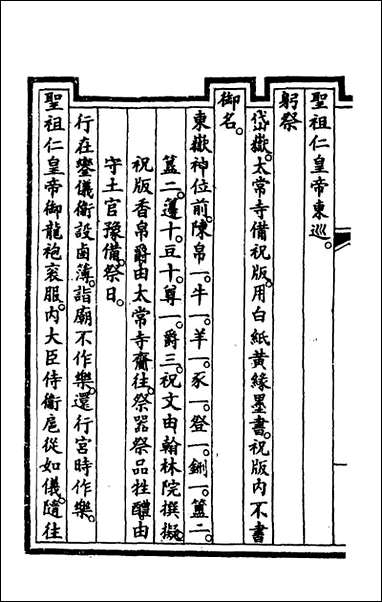 聖祖仁皇帝東巡
躬祭
岱嶽。太常寺備祝版。用白紙黃緣墨書。祝版內不書
御名。
東嶽神位前。陳帛一。牛一。羊一。豕一。登一。鉶一。簠二。
簋二。籩十。豆十。尊一。爵三。祝文由翰林院撰擬。
祝版香帛爵由太常寺齎往。祭器祭品牲醴。由
守土官豫備。祭日。
行在鑾儀衛設鹵簿。詣廟不作樂。還行宮時作樂。
聖祖仁皇帝御龍袍袞服。內大臣侍衛扈從如儀。隨往